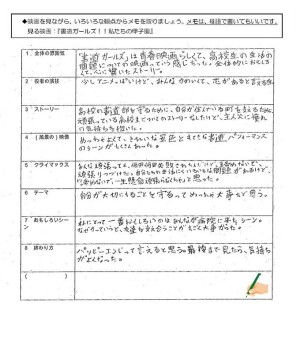 ◆映画を見ながら、いろいろな観点からメモを取りましょう。メモは、母語で書いてもいいです。
見る映画:『書道ガールズ!!私たちの甲子園』
1 全体の雰囲気
「書道ガールズ」は青春映画らしくて、高校生の生活の
問題についての映画という感じだった。全体的におもしろ
くて、心に響いたストーリー。
2 役者の演技
少しアニメっぽいけど、みんなかわいくて、花があると言える
3 ストーリー
高校の書道部を守るために、自分が住んでいる町を支えるため
頑張っている高校生についてのストーリーなんだけど、主人公に憧れ
の気持ちを抱いた。
4 (風景の)映像
めっちゃよくて、きれいな景色とすてきな書道パフォーマンス
のシーンがたくさんあった。
5 クライマックス
みんな頑張ってて、
頑張りつづけた。
と思った。
6 テーマ
自分が大切にするところを守るってめっちゃ大事だと思う。
7 おもしろいシーン
私にとって一番おもしろいのはみんなが病院に来たシーン。
友達を支え合うことがすごく大事かった。
8 終わり方
ハッピーエンドって言えると思う。最後まで見たら、気持ち
がよくなった。
( )